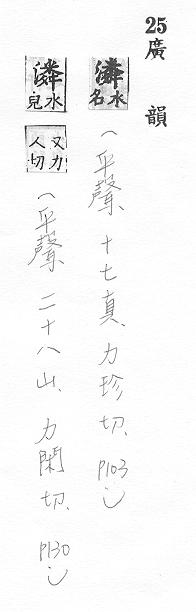 25
廣韻
潾水名(平聲、十七真、力珍切、p103)
潾水皃又力人切(平聲、二十八山、力閑切、p130)